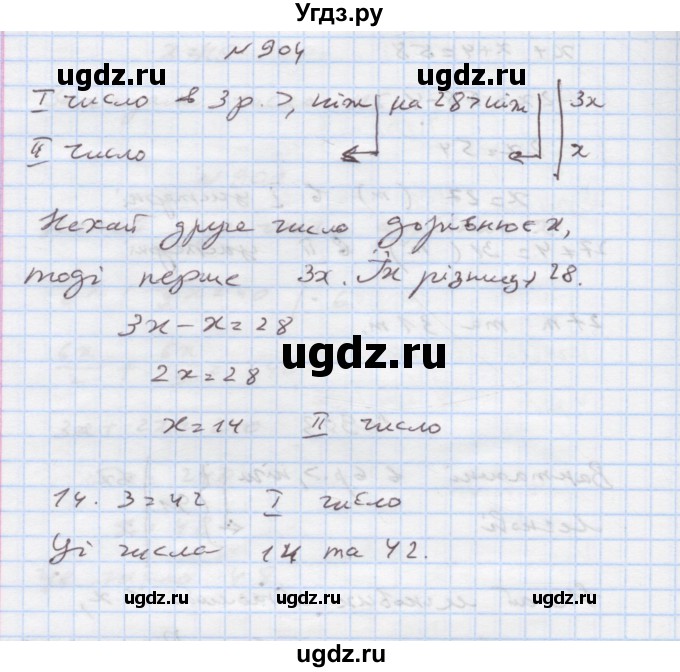 Угдз.ру
№ 904
I число в 3 р. >, ніж на 28 > ніж 3x
II число x
Нехай друге число дорівнює x,
тоді перше 3x. Їх різниця 28.
3x - x = 28
2x = 28
x = 14 II число
14 . 3 = 42 I число
Ці числа 14 та 42.
ugdz.ru ugdz.ru ugdz.ru
ugdz.ru
ugdz.ru
ugdz.ru
ugdz.ru ugdz.ru ugdz.ru
ugdz.ru